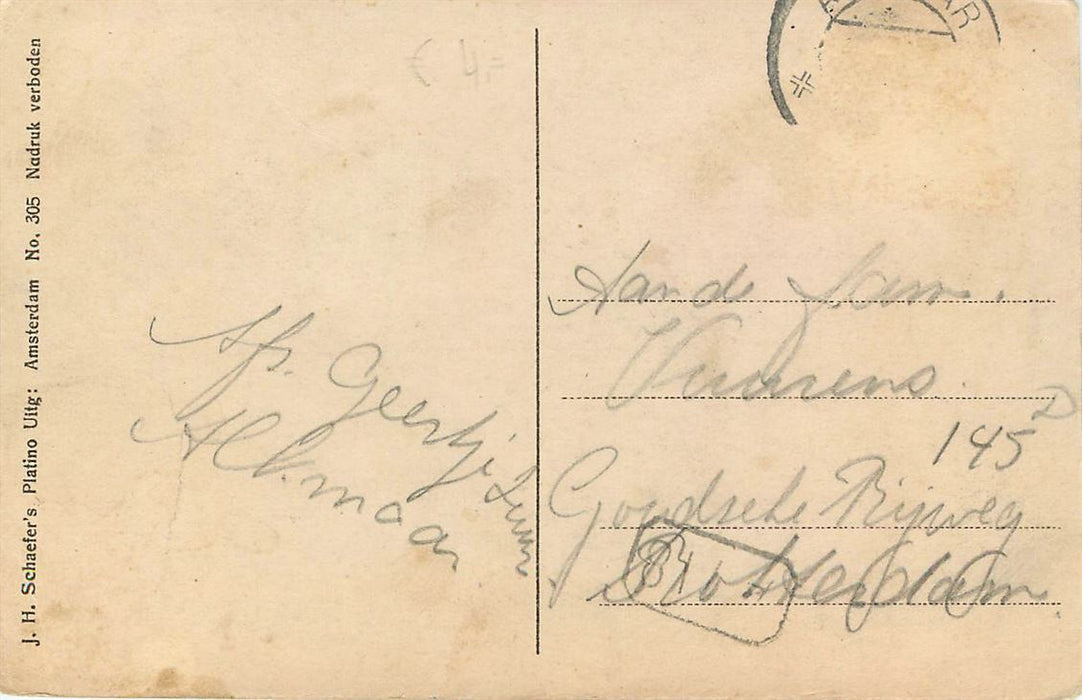 J. H. Schaefer's Platino Uitg: Amsterdam No. 305 Nadruk verboden
€ 4,=
AR
Afs. Geertje
Alkmaar
Aan de Fam.
145 D
Goudsche Rijweg
Rotterdam